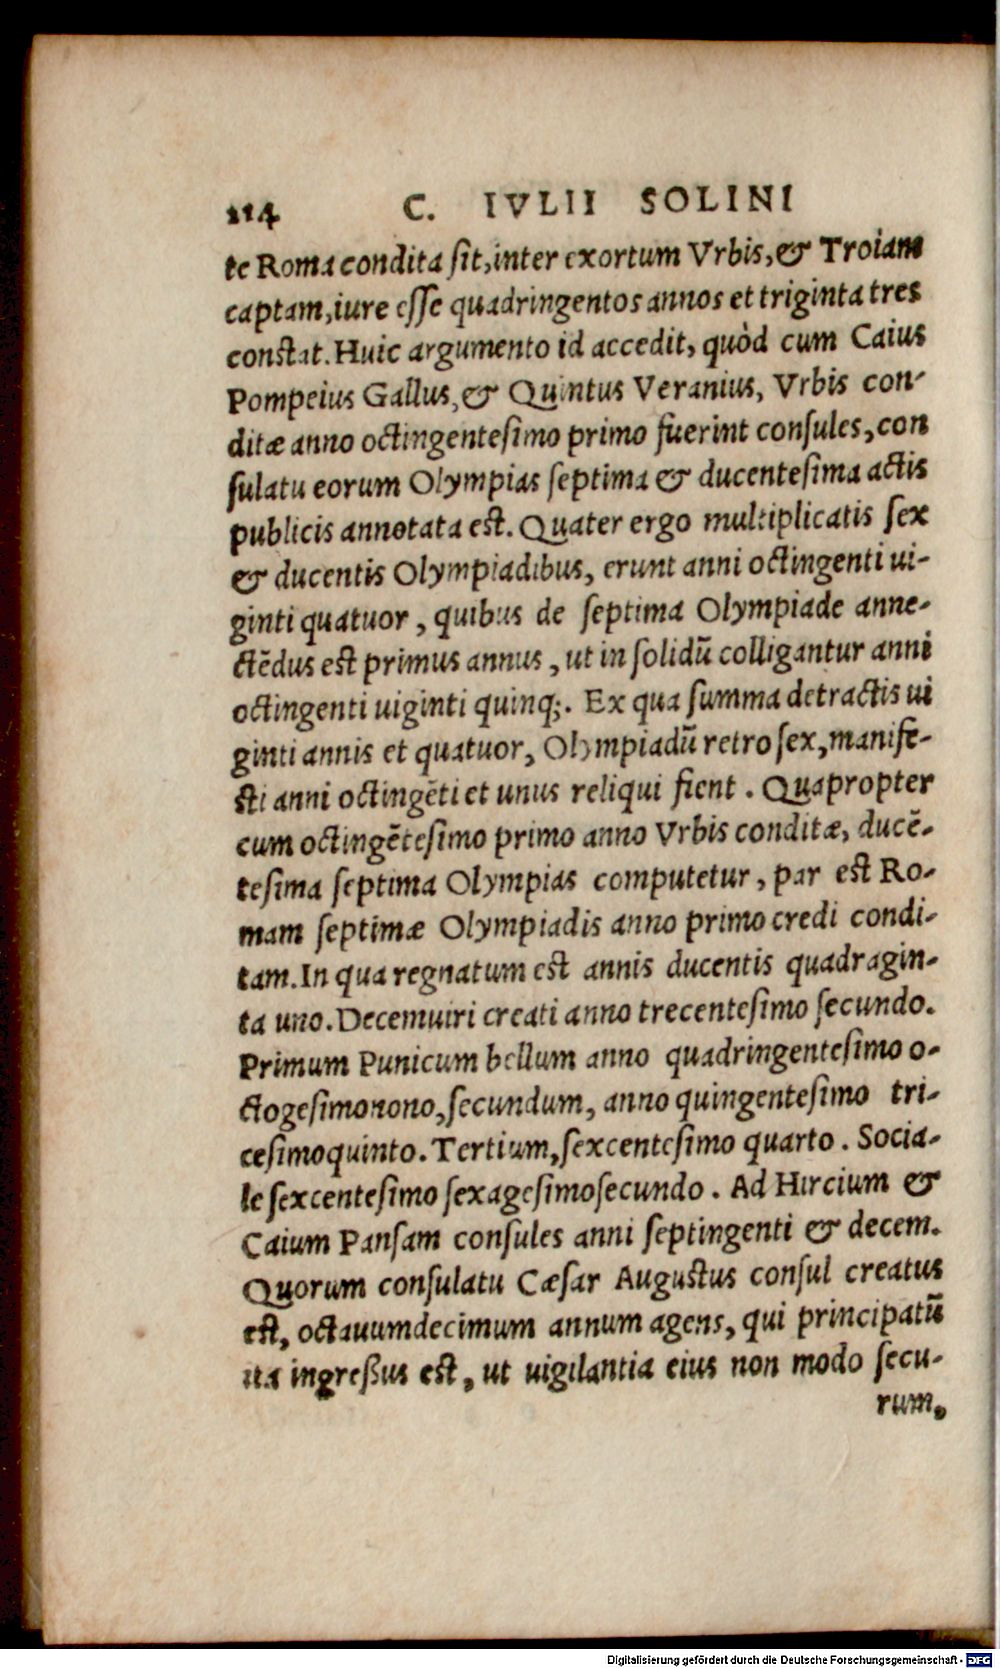 114 C. IVLII SOLINI
te Roma condita ſit, inter exortum Vrbis, & Troiam
captam, iure eſſe quadringentos annos et triginta tres
constat. Huic argumento id accedit, quòd cum Caius
Pompeius Gallus, & Quintus Veranius, Vrbis con-
ditæ anno octingenteſimo primo fuerint conſules, con
ſulatu eorum Olympias ſeptima & ducenteſima actis
publicis annotata est. Quater ergo multiplicatis ſex
& ducentis Olympiadibus, erunt anni octingenti ui-
ginti quatuor, quibus de ſeptima Olympiade anne-
ctẽdus est primus annus, ut in ſolidũ colligantur anni
octingenti uiginti quinq;. Ex qua ſumma detractis ui
ginti annis et quatuor, Olympiadũ retro ſex, manife-
sti anni octingẽti et unus reliqui fient. Quapropter
cum octingẽteſimo primo anno Vrbis conditæ, ducẽ-
teſima ſeptima Olympias computetur, par est Ro-
mam ſeptimæ Olympiadis anno primo credi condi-
tam. In qua regnatum est annis ducentis quadragin-
ta uno. Decemuiri creati anno trecenteſimo ſecundo.
Primum Punicum bellum anno quadringenteſimo o-
ctogeſimonono, ſecundum, anno quingenteſimo tri-
ceſimoquinto. Tertium, ſexcenteſimo quarto. Socia-
le ſexcenteſimo ſexageſimoſecundo. Ad Hircium &
Caium Panſam conſules anni ſeptingenti & decem.
Quorum conſulatu Cæſar Augustus conſul creatus
est, octauumdecimum annum agens, qui principatũ
ita ingreßus est, ut uigilantia eius non modo ſecu-
rum,
Digitalisierung gefördert durch die Deutsche Forschungsgemeinschaft - DFG